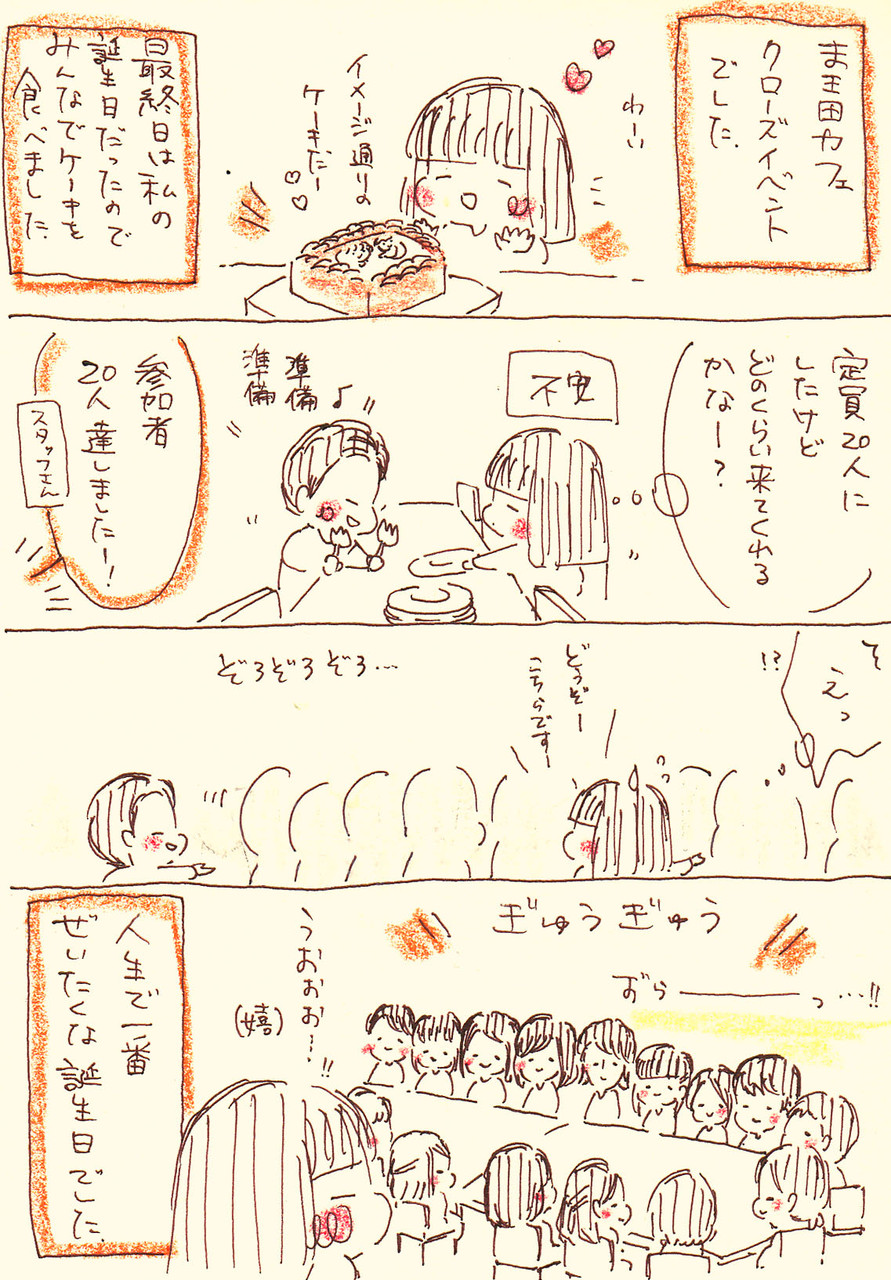 ま王田カフェ
クローズイベント
でした。
わーい
イメージ通りの
ケーキだー
最終日は私の
誕生日だったので
みんなでケーキを
食べました。
定員20人に
したけど
どのくらい来てくれる
かなー?
不安
準備
準備♪
参加者
20人達しましたー!
スタッフさん
そ
えっ
!?
どうぞー
こちらですー
ぞろぞろぞろ…
ぎゅうぎゅう
ずらーーーっ…!!
うおおお…!!
(嬉)
人生で一番
ぜいたくな誕生日でした。